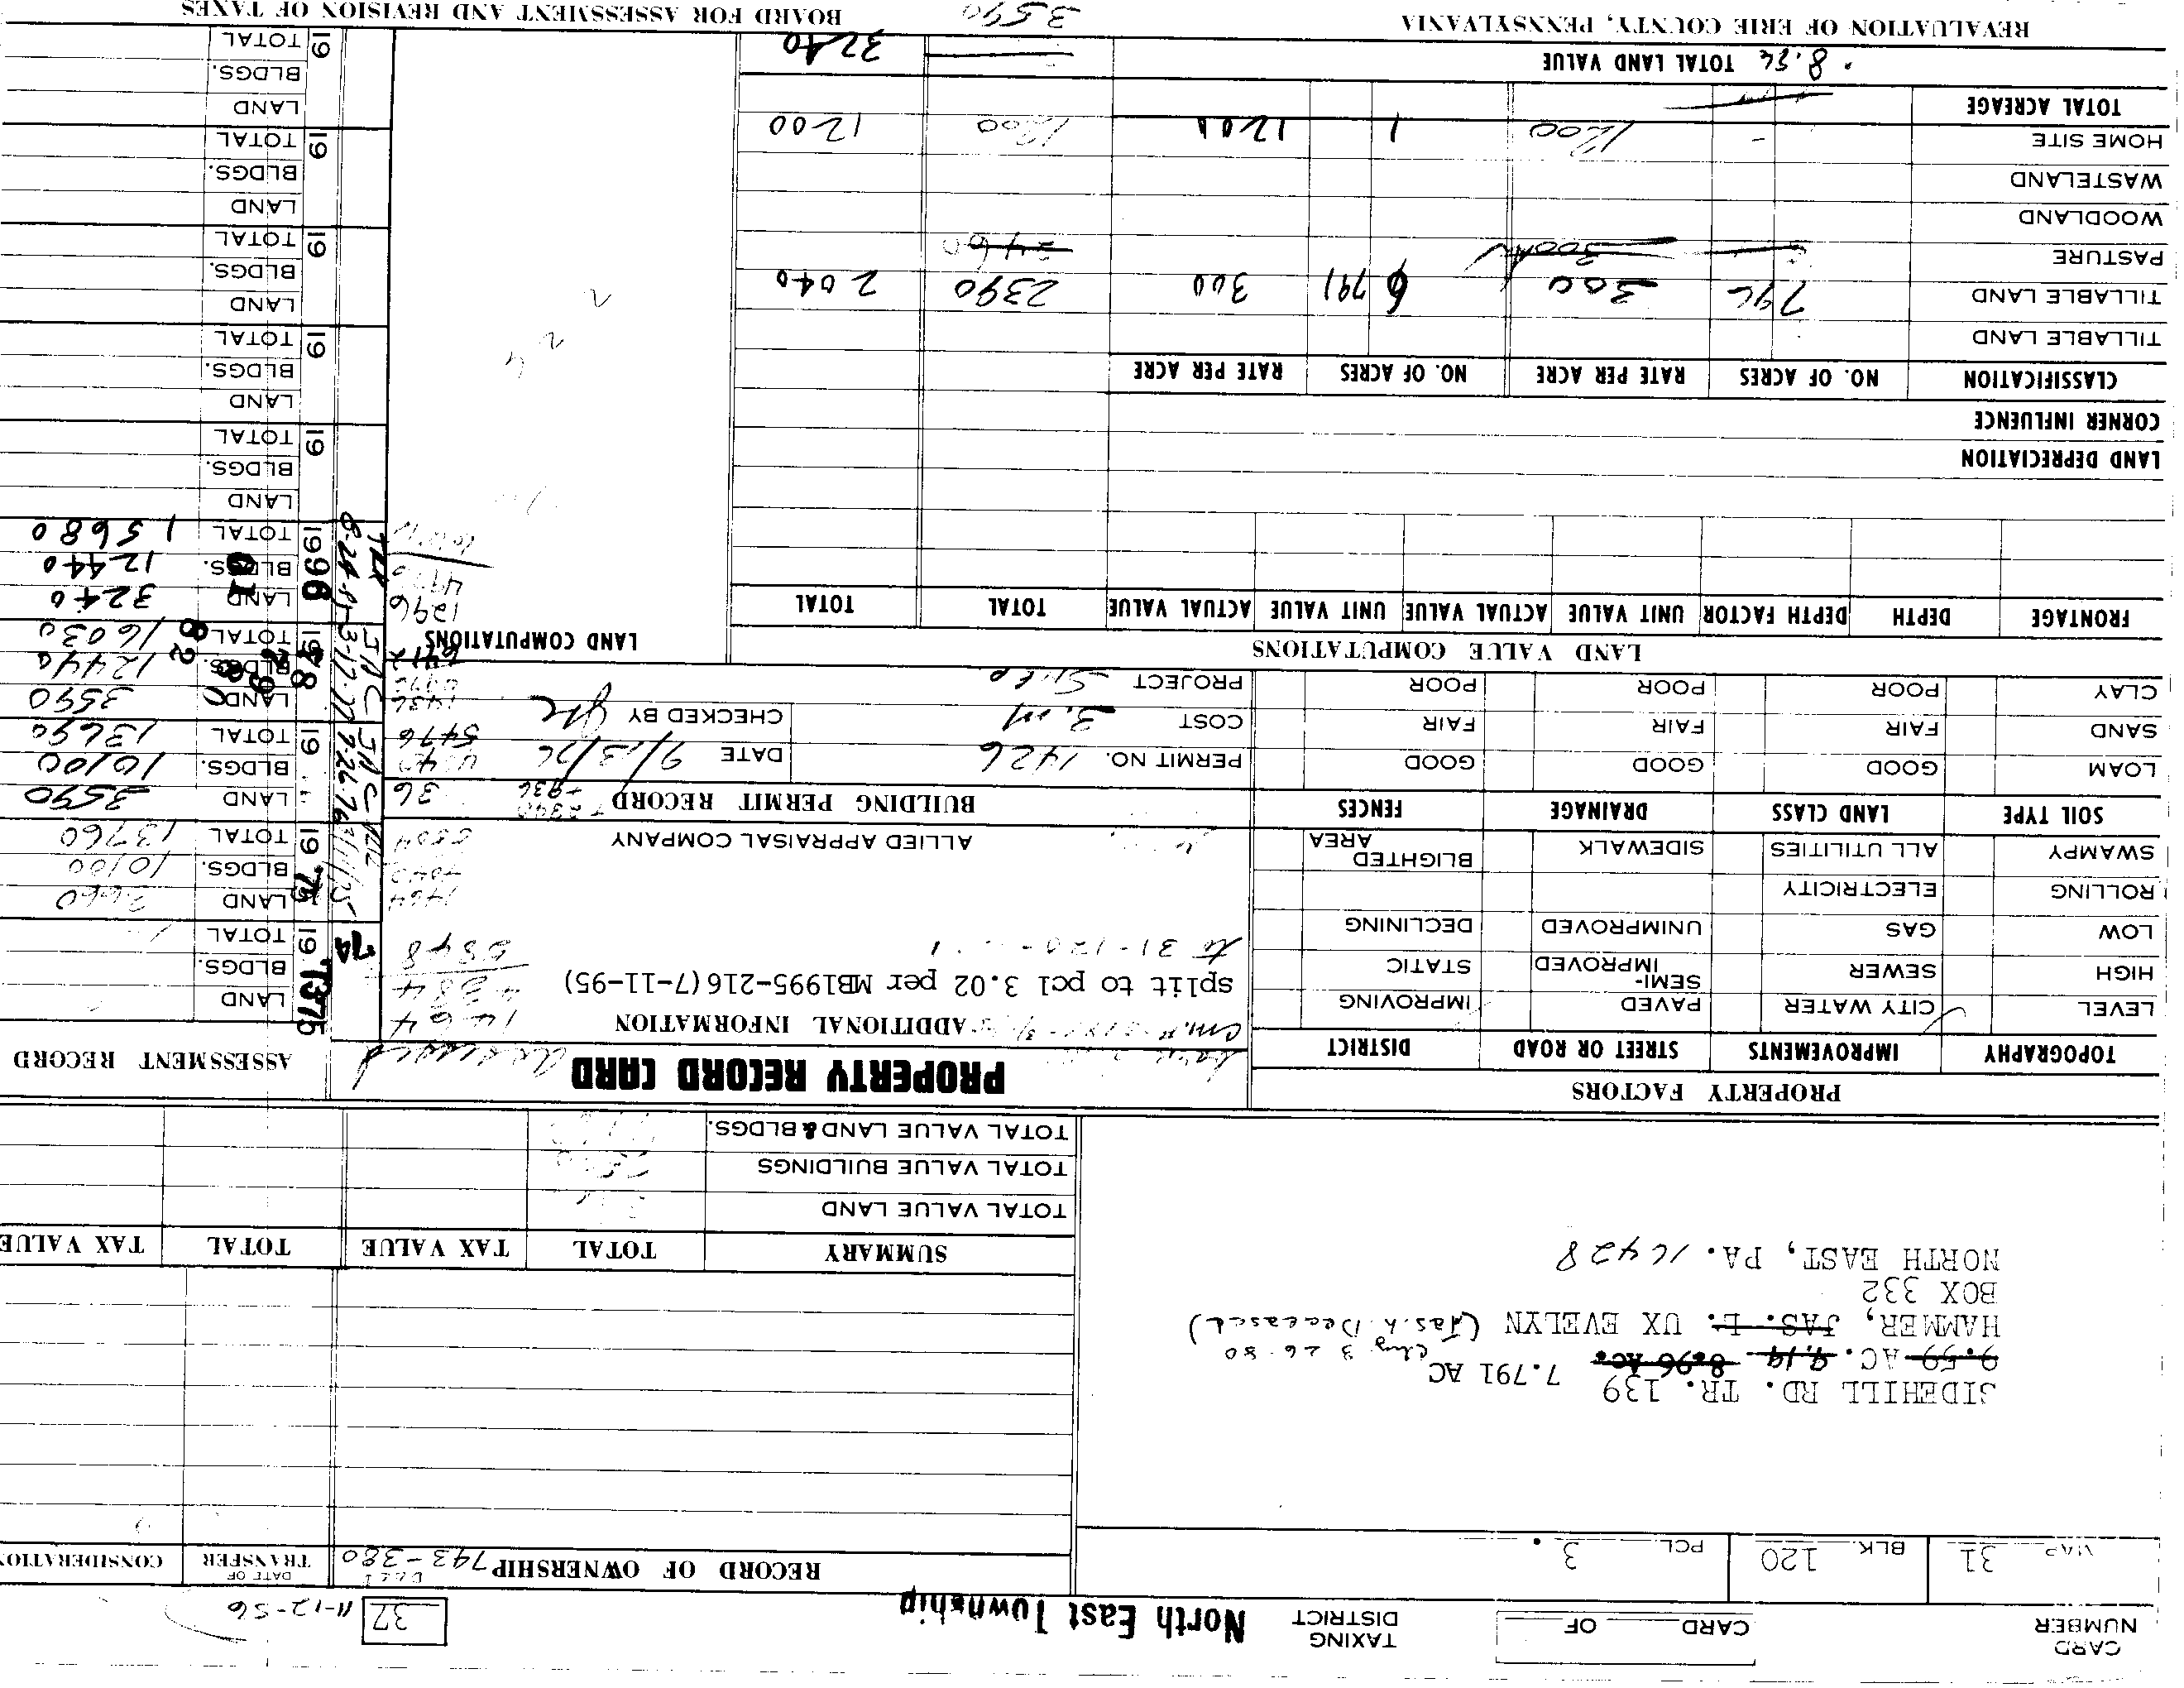 CARD NUMBER
CARD OF
TAXING DISTRICT North East Township
37 11-12-56
MAP 31 BLK. 120 PCL. 3.
RECORD OF OWNERSHIP DEED 793-380 DATE OF TRANSFER CONSIDERATION
SIDEHILL RD. TR. 139 7.791 AC
9.59 AC. 9.14 8.96 AC. chg 3 26 80
HAMMER, JAS. L. UX EVELYN (Jas. L. Deceased)
BOX 332
NORTH EAST, PA. 16428
SUMMARY TOTAL TAX VALUE TOTAL TAX VALUE
TOTAL VALUE LAND
TOTAL VALUE BUILDINGS
TOTAL VALUE LAND & BLDGS.
PROPERTY FACTORS
TOPOGRAPHY IMPROVEMENTS STREET OR ROAD DISTRICT
LEVEL CITY WATER PAVED IMPROVING
HIGH SEWER SEMI-IMPROVED STATIC
LOW GAS UNIMPROVED DECLINING
ROLLING ELECTRICITY
SWAMPY ALL UTILITIES SIDEWALK BLIGHTED AREA
SOIL TYPE LAND CLASS DRAINAGE FENCES
LOAM GOOD GOOD GOOD
SAND FAIR FAIR FAIR
CLAY POOR POOR POOR
PROPERTY RECORD CARD
ADDITIONAL INFORMATION
split to pcl 3.02 per MB1995-216(7-11-95)
to 31-120-
ALLIED APPRAISAL COMPANY
BUILDING PERMIT RECORD
PERMIT NO. 1426 DATE 9/13/76
COST 3.m CHECKED BY
PROJECT
ASSESSMENT RECORD
'74 19 T375 LAND
BLDGS.
TOTAL
19 '75 LAND 3660
BLDGS. 10100
TOTAL 13760
19 LAND 3590
BLDGS. 10100
TOTAL 13690
1978 79 80 82 LAND 3590
BLDGS. 12440
TOTAL 16030
1996 LAND 3240
BLDGS. 12440
TOTAL 15680
19 LAND
BLDGS.
TOTAL
19 LAND
BLDGS.
TOTAL
19 LAND
BLDGS.
TOTAL
19 LAND
BLDGS.
TOTAL
19 LAND
BLDGS.
TOTAL
LAND VALUE COMPUTATIONS
LAND COMPUTATIONS
FRONTAGE DEPTH DEPTH FACTOR UNIT VALUE ACTUAL VALUE UNIT VALUE ACTUAL VALUE TOTAL TOTAL
LAND DEPRECIATION
CORNER INFLUENCE
CLASSIFICATION NO. OF ACRES RATE PER ACRE NO. OF ACRES RATE PER ACRE
TILLABLE LAND
TILLABLE LAND 796 300 6 791 300 2390 2040
PASTURE 300 2460
WOODLAND
WASTELAND
HOME SITE - 1200 1 1200 1200 1200
TOTAL ACREAGE
8.96 TOTAL LAND VALUE 3240
REVALUATION OF ERIE COUNTY, PENNSYLVANIA 3590 BOARD FOR ASSESSMENT AND REVISION OF TAXES